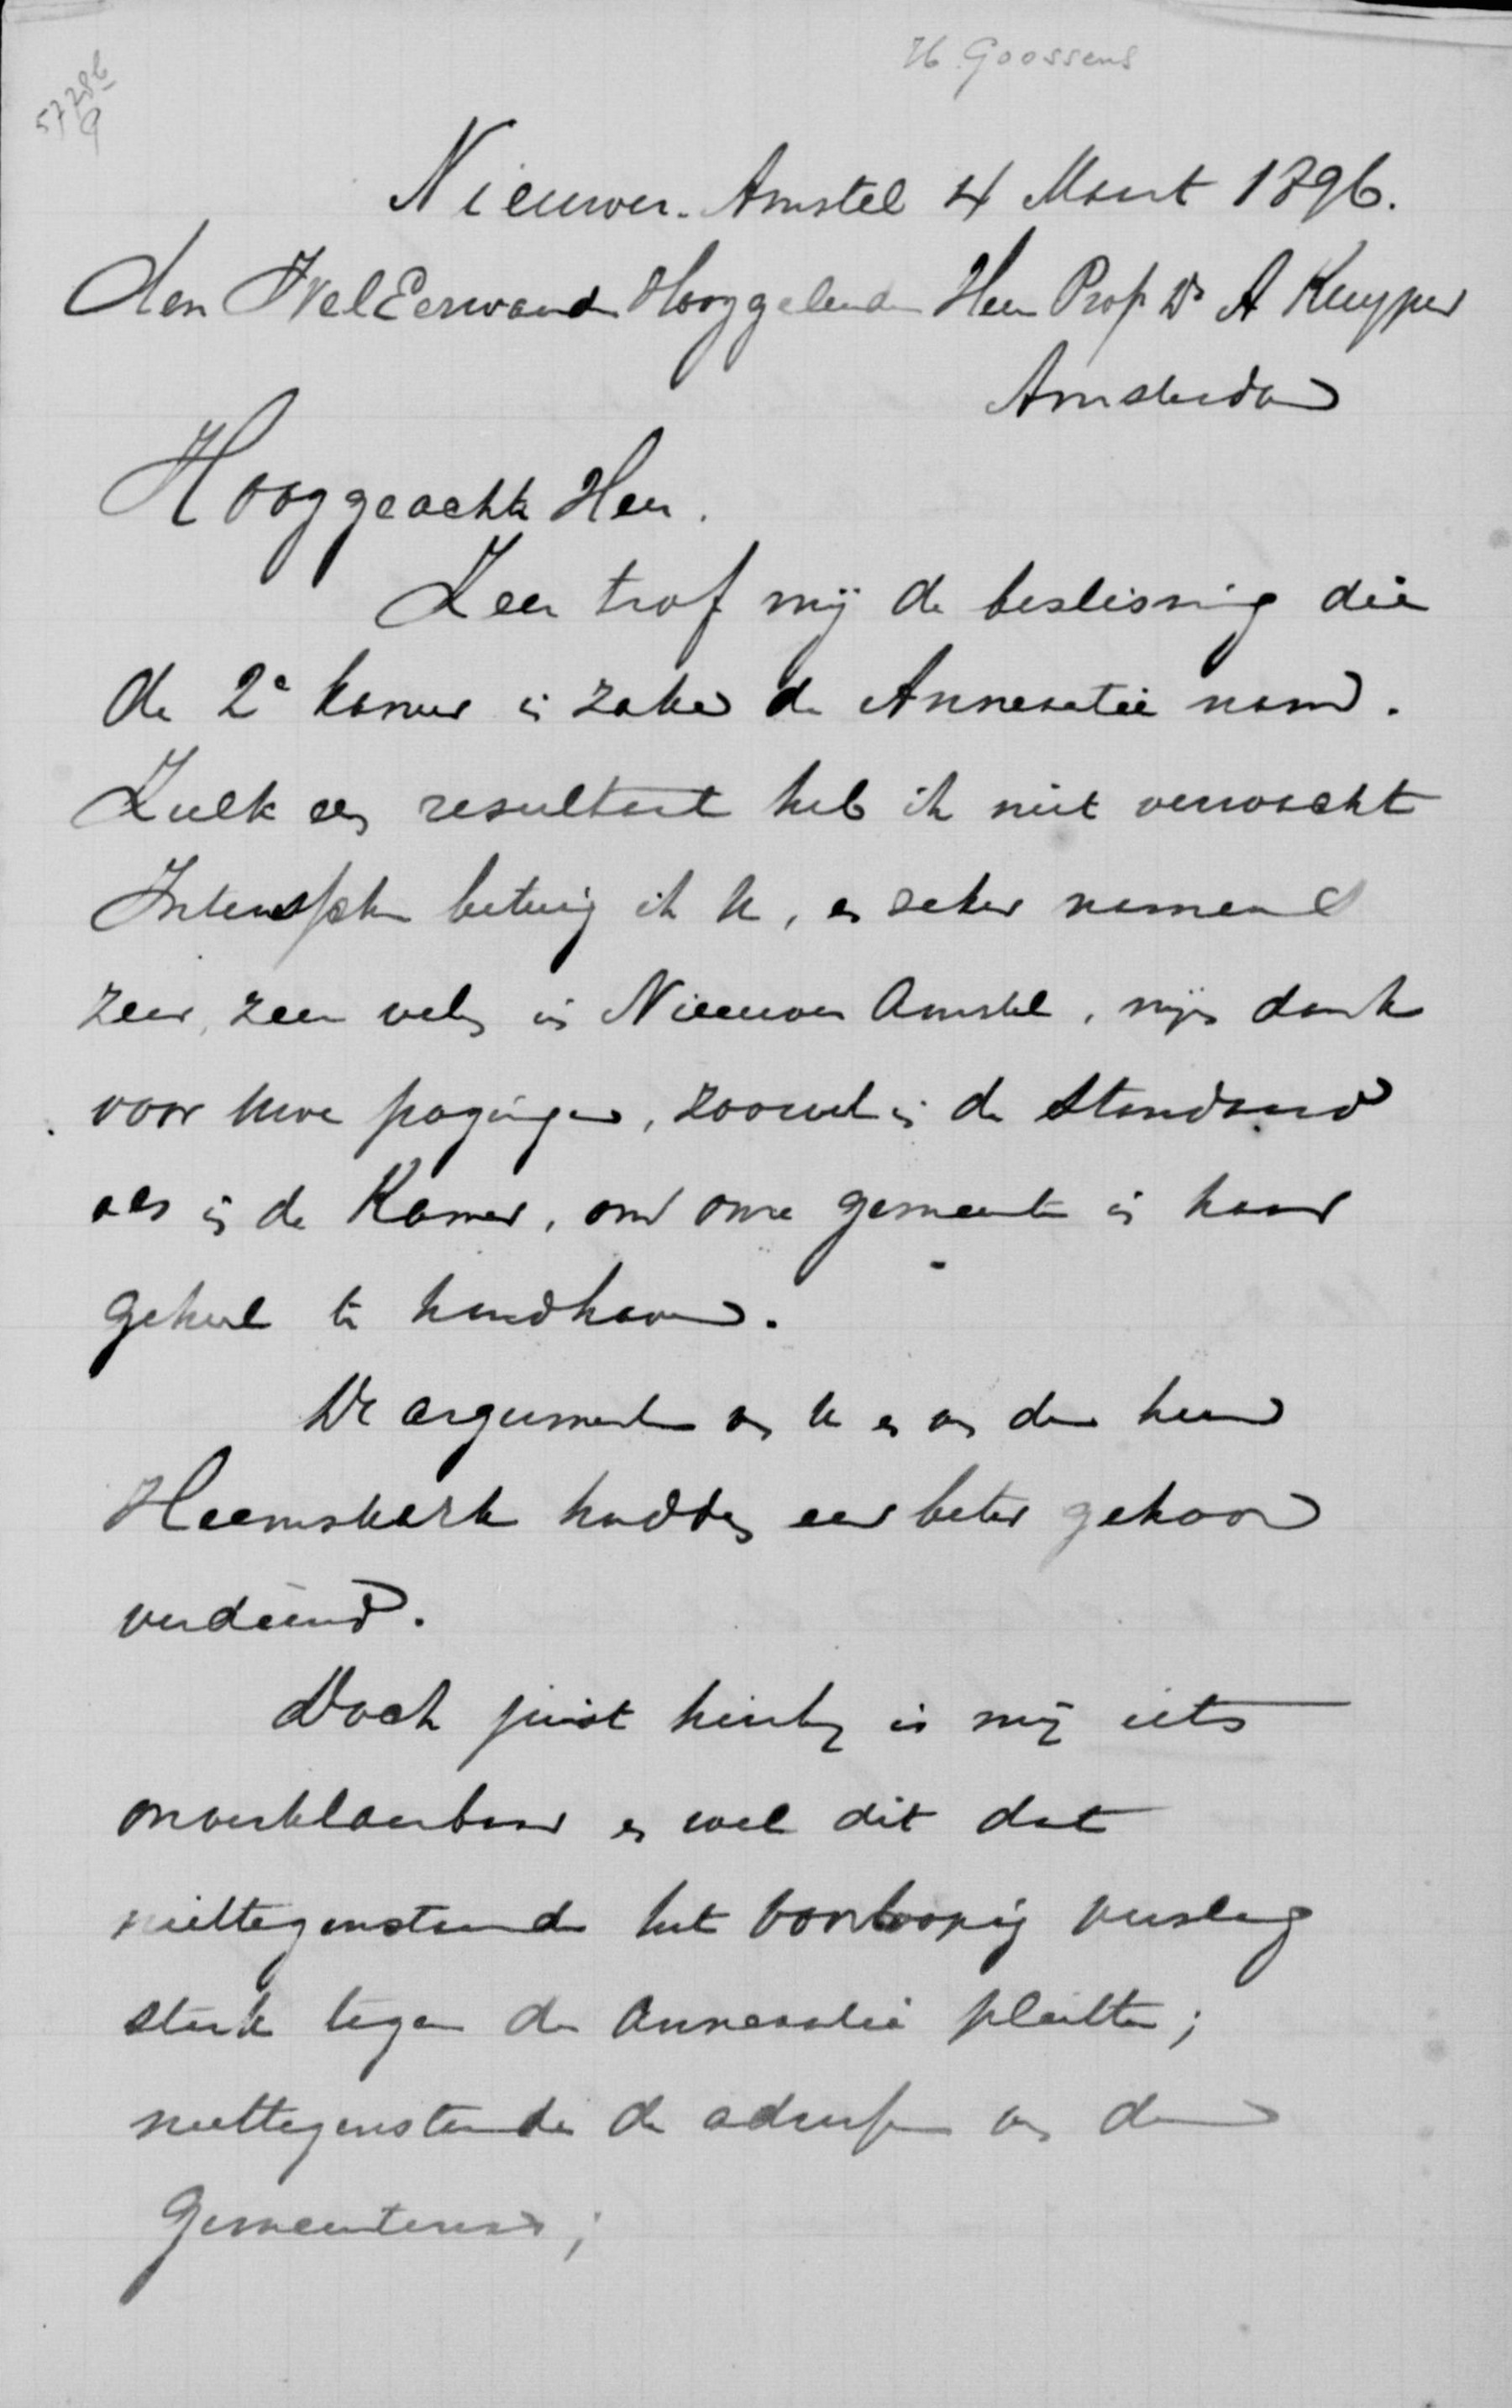 H. Goossens
5728b
9
Nieuwer-Amstel 4 Maart 1896.
den WelEerwaarden Hooggeleerden Heer Prof Dr A Kuyper
Amsterdam
Hooggeachte Heer.
Zeer trof mij de beslissing die
de 2e kamer in zake de Annexatie nam.
Zulk een resultaat heb ik niet verwacht
Intusschen betuig ik U, en zeker namens
zeer, zeer velen in Nieuwer Amstel, mijn dank
voor Uwe pogingen, zoowel in de Standaard
als in de Kamer, om onze gemeente in haar
geheel te handhaven.
De argumenten van U en van den heer
Heemskerk hadden een beter gehoor
verdiend.
Doch juist hierbij is mij iets
onverklaarbaar en wel dit dat
niettegenstaande het voorloopig verslag
sterk tegen de annexatie pleitte;
niettegenstaande de adressen van den
Gemeenteraad;